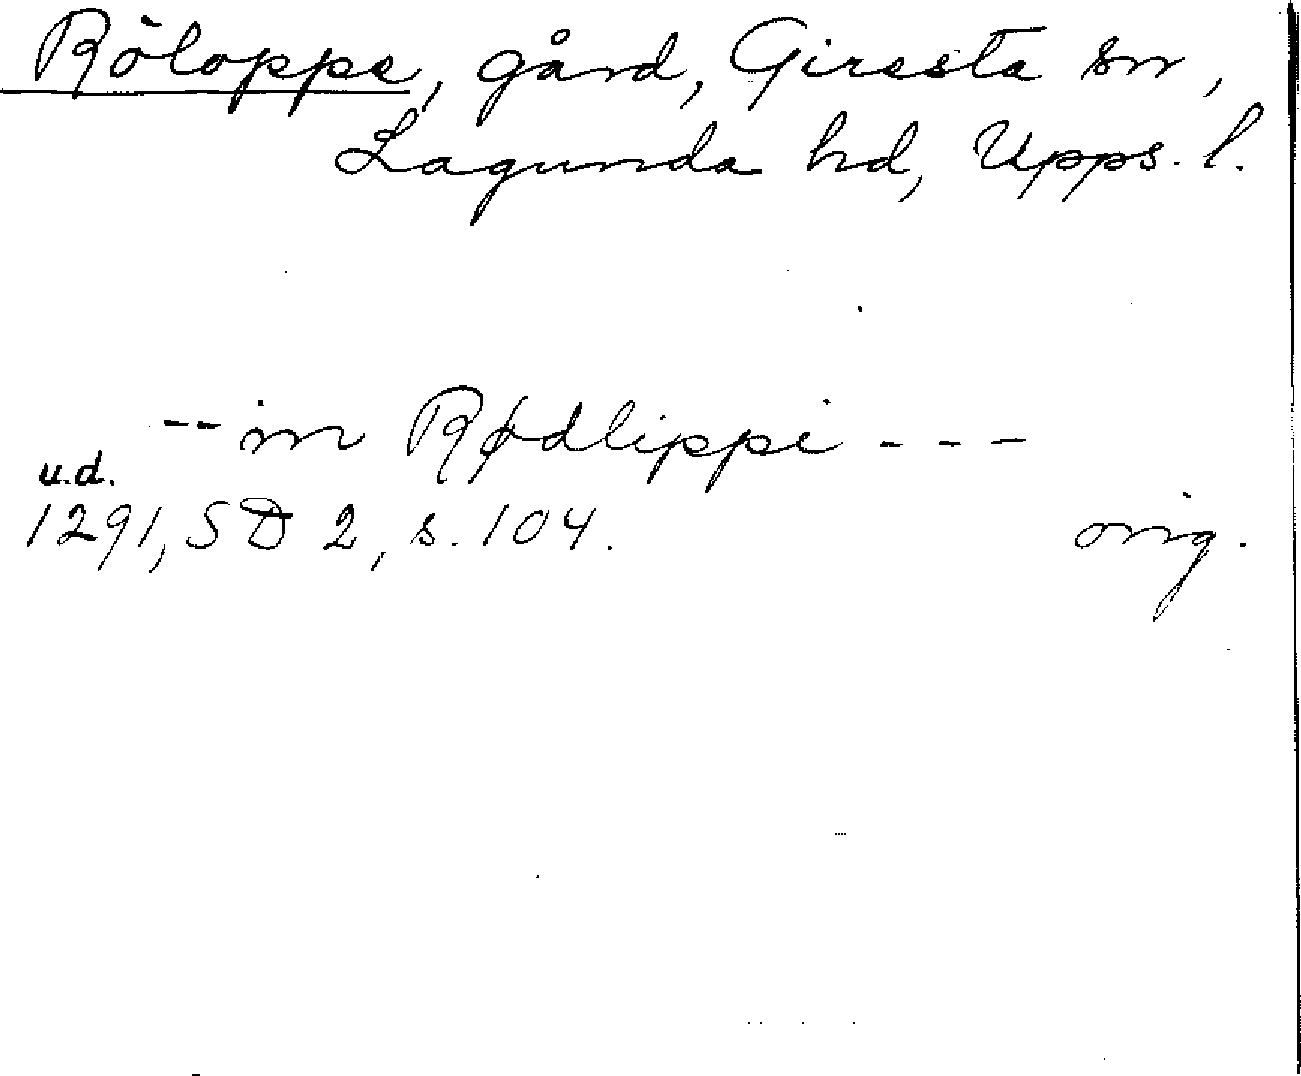 Röloppe, gård, Giresta sn,
Lagunda hd, Upps. l.
-- in Rødlippi - - -
u.d.
1291, SD 2, s. 104. orig.